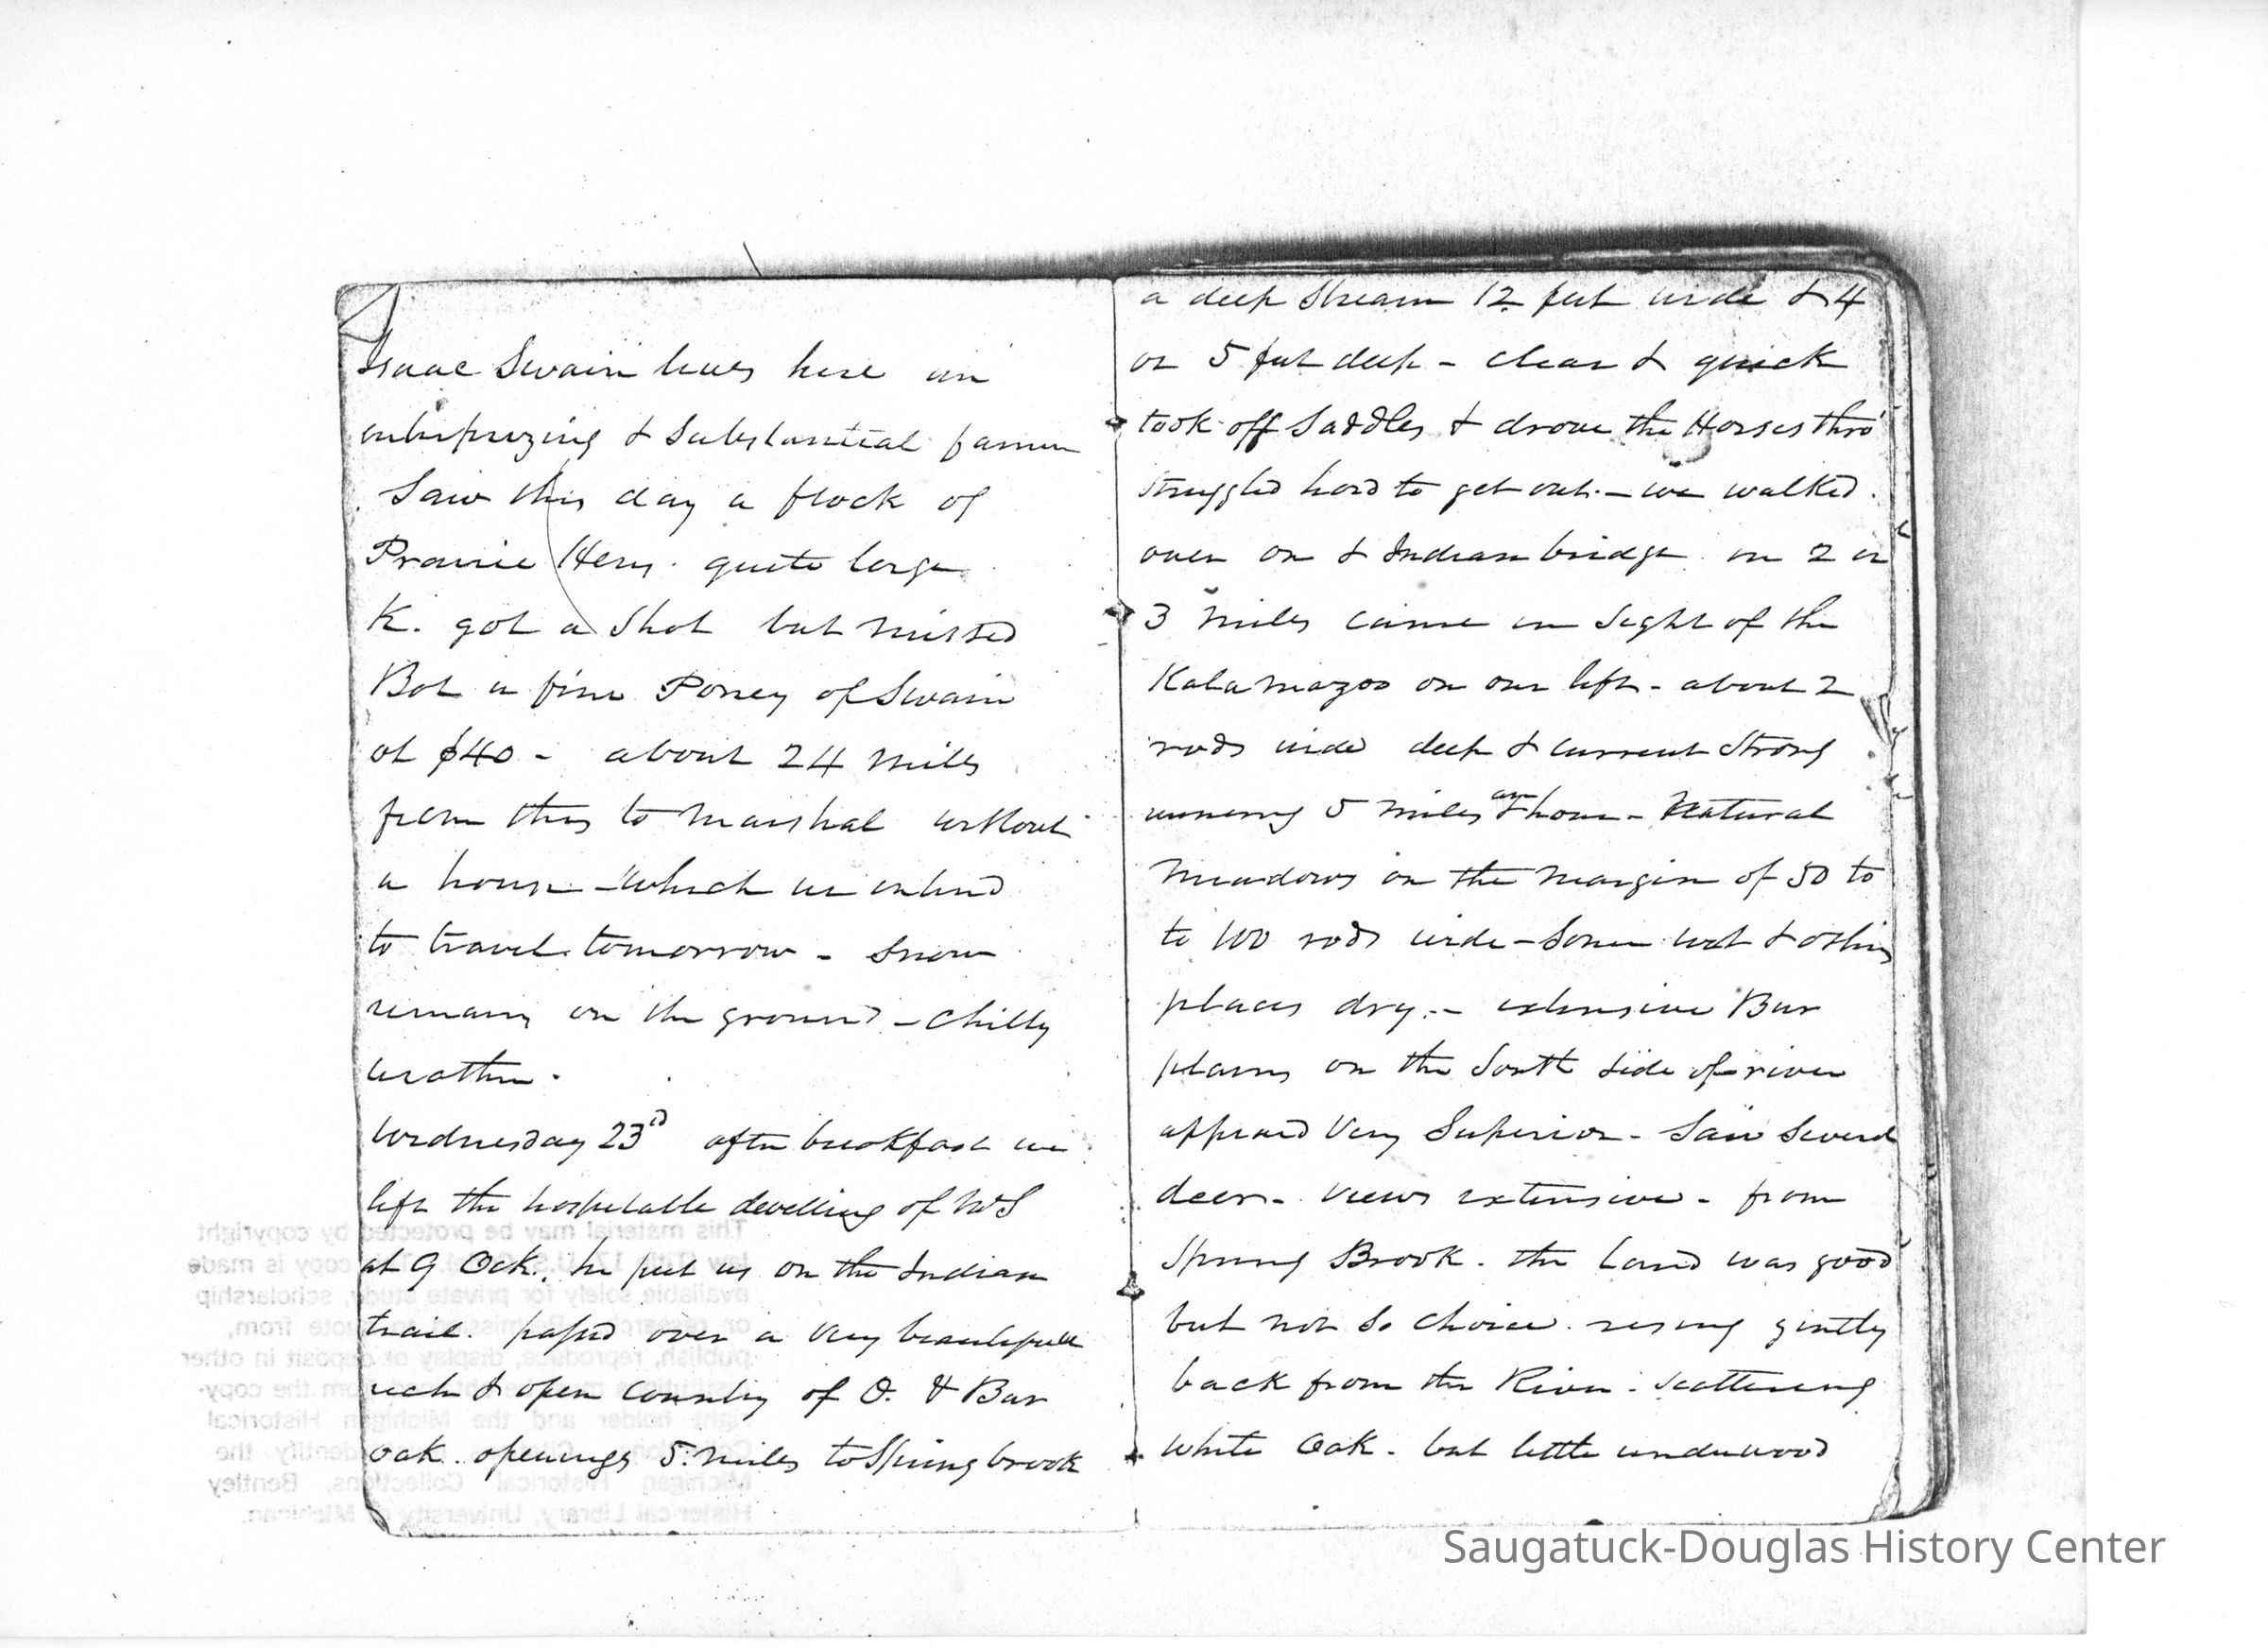 Isaac Swain lives here an
enterprizing & Substantial farmer
Saw this day a flock of
Prairie Hens. quite large
K. got a Shot but missed
Bot a fine Poney of Swain
at $40 - about 24 miles
from this to Marshal without
a house - which we intend
to travel tomorrow - Snow
remains on the ground - Chilly
weather.
Wednesday 23d after breakfast we
left the hospitable dwelling of
at 9 Ock., he put us on the Indian
trail. passed over a very beautifull
rich & open country of O. & Bur
oak. openings 5 miles to Spring brook
a deep Stream 12 feet wide & 4
or 5 feet deep - clear & quick
took off Saddles & drove the Horses thro'
struggled hard to get out. - we walked
over on & Indian bridge. in 2 or
3 miles came in Sight of the
Kalamazoo on our left - about 2
rods wide deep & current Strong
running 5 miles an hour - Natural
Meadows on the margin of 50 to
to 100 rods wide - Some wet & others
places dry. - extensive Bur
plains on the South side of river
appeared Very Superior - Saw Several
deer - Views extensive - from
Spring Brook. the Land was good
but not So choice. rising gently
back from the River. scattering
white Oak. but little underwood
This material may be protected by copyright
available solely for private study, scholarship
publish, reproduce, display or deposit in other
holder and the Michigan Historical
Michigan Historical Collections, Bentley
Historical Library, University of Michigan.
Saugatuck-Douglas History Center